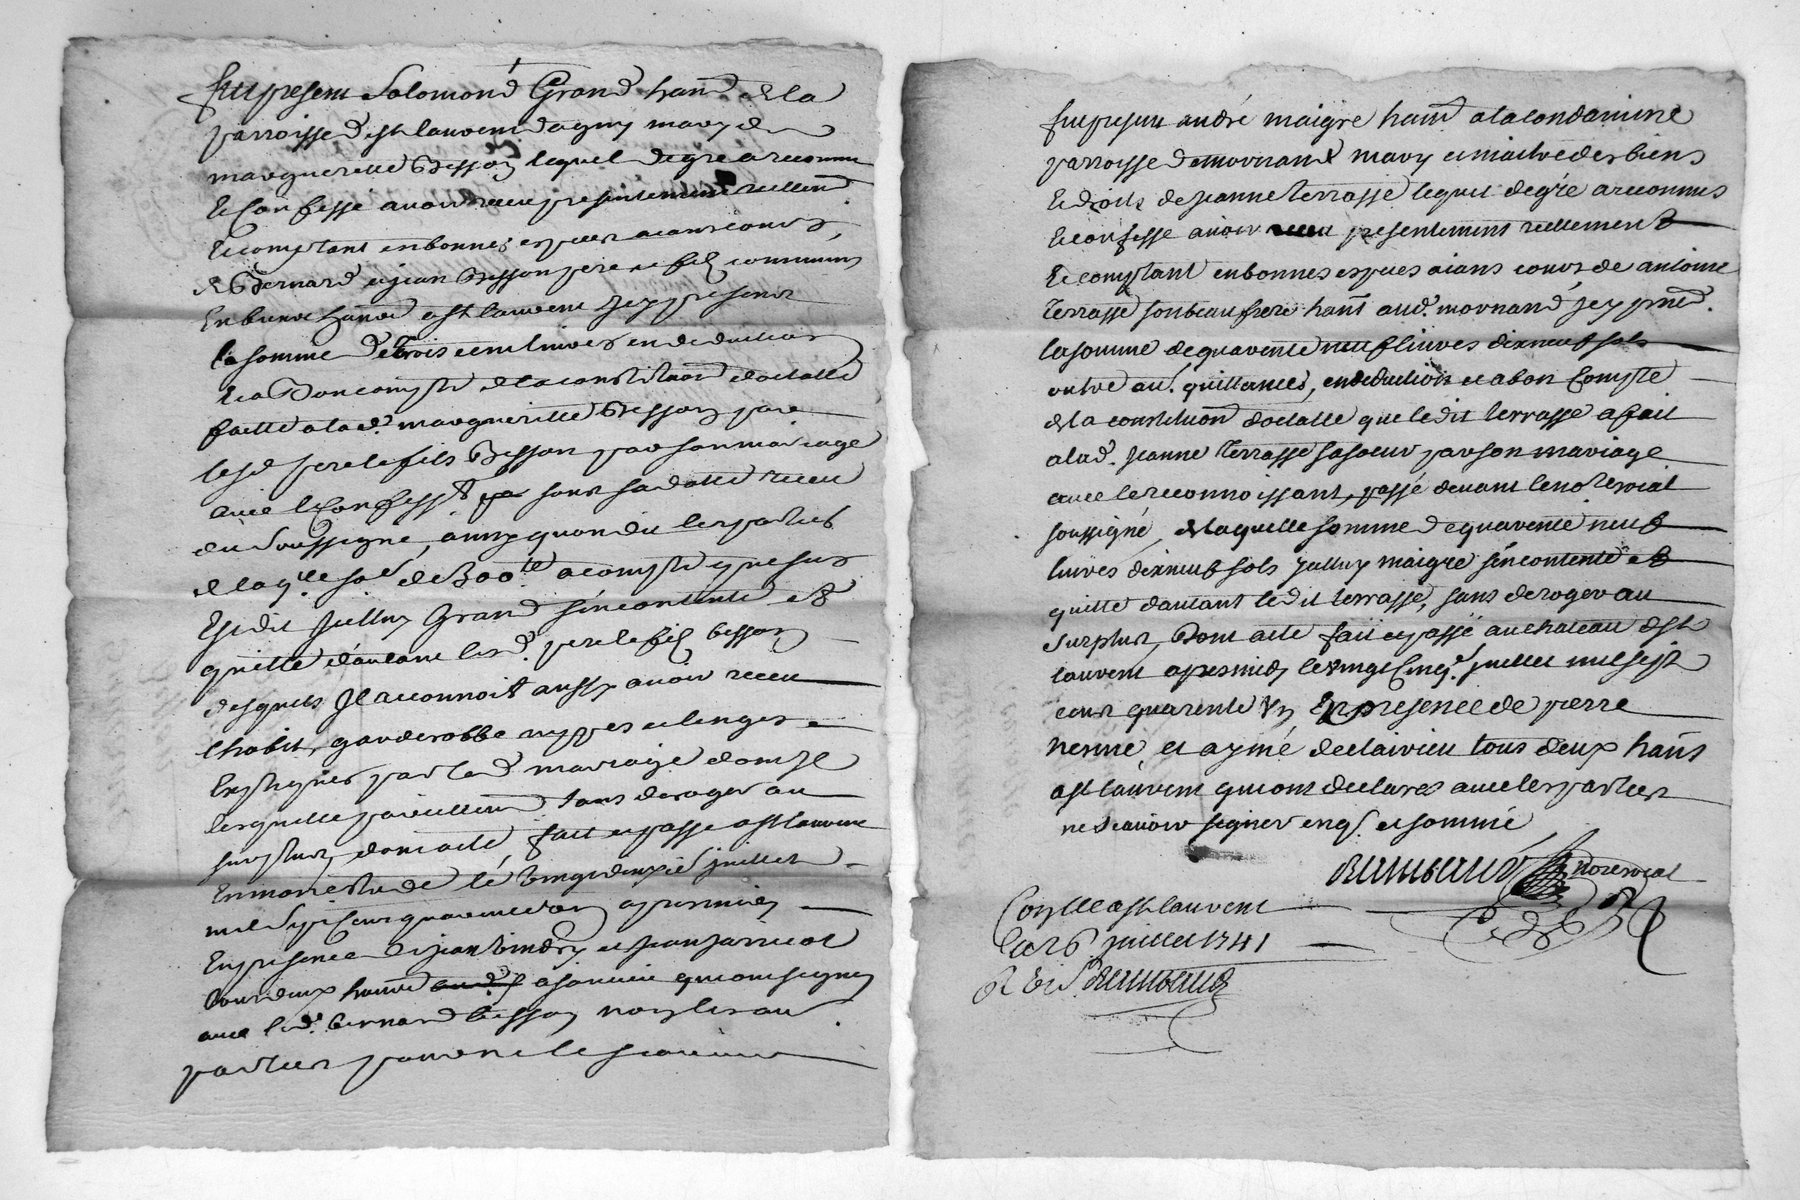 fut present Salomond Grand hand de la
parroisse de st laurent dagny mary de
marguerite Besson lequel de gre a reconnu
& Confessé avoir receu presentement reellemt
& comptant en bonnes especes aians cours,
de Bernard et jean Besson pere et fils communs
en biens hands a st laurent Jcy presents
la somme de trois cent livres en deduction
& a bon compte de la constituon doctalle
faitte a lad. marguerite Besson par
lesd pere et fils Besson par son mariage
avec le Confesst sous sa datte receu
du soussigne, ainsy quon dit les parties
de laqlle some de 300 ll a compte que sus
Est dit jcelluy Grand sen contente et
quitte dautant lesd. pere et fils besson
desquels Jl reconnoit aussy avoir receu
lhabit, garderobbe nyppes et linges
Expliqués par led mariage dont Jl
les quitte pareillemt sans deroger au
surplus, dont acte fait et passé a st laurent
En mon estude le vingt deuxie juillet
mil sept cent quarante un apres midy
En presence de jean vindry et jean jarricot
tous deux hands a soucieu qui ont signé
avec led. bernard besson non les autres
parties pour ne le scavoir
fut present andré maigre hant a la condamine
parroisse de mornand mary et maitre des biens
& droits de jeanne terrasse lequel de gré a reconnus
& confesse avoir receu presentement reellement
& comptant en bonnes especes aians cours de antoine
terrasse son beau frere hant aud. mornand jcy pnt.
la somme de quarente neuf livres dix neuf sols
outre au. quittances, en deduction et a bon Compte
de la constituon doctalle que ledit terrasse a fait
a lad. jeanne terrasse sa soeur par son mariage
avec le reconnoissant, passé devant le not. royal
soussigné, de laquelle somme de quarente neuf
livres dix neuf sols jcelluy maigre sen contente et
quitte dautant ledit terrasse, sans deroger au
surplus, Dont acte fait et passé au chateau de st
laurent apres midy le vingt Cinqe juillet mil sept
cent quarente Un En presence de pierre
nenne, et aymé declairieu tous deux hants
a st laurent qui ont declarés avec les parties
ne scavoir signer enqs. et sommé
Rambaud not royal
Conlle a st laurent
le 26 juillet 1741
R Rambaud